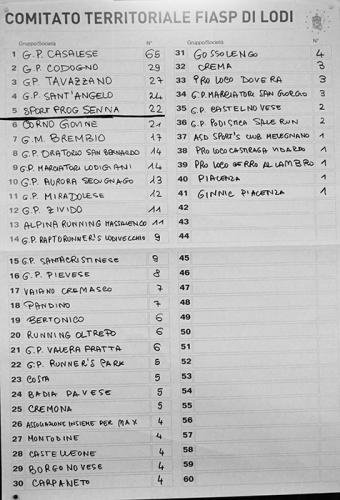 COMITATO TERRITORIALE FIASP DI LODI
Gruppo/Società N° Gruppo/Società N°
1 G.P. CASALESE 65
2 G.P. CODOGNO 29
3 G.P. TAVAZZANO 27
4 G.P. SANT'ANGELO 24
5 SPORT PROG SENNA 22
6 CORNO GIOVINE 21
7 G.M. BREMBIO 17
8 G.P. ORATORIO SAN BERNARDO 14
9 G.P. MARCIATORI LODIGIANI 14
10 G.P. AURORA SECUGNAGO 13
11 G.P. MIRADOLESE 12
12 G.P. ZIVIDO 11
13 ALPINA RUNNING MASSALENGO 11
14 G.P. RAPTORUNNER'S LODIVECCHIO 9
15 G.P. SANTACRISTINESE 8
16 G.P. PIEVESE 8
17 VAIANO CREMASCO 7
18 PANDINO 7
19 BERTONICO 6
20 RUNNING OLTREPO 6
21 G.P. VALERA FRATTA 6
22 G.P. RUNNER'S PARK 5
23 COSTA 5
24 BADIA PAVESE 5
25 CREMONA 5
26 ASSOCIAZIONE INSIEME PER MAX 4
27 MONTODINE 4
28 CASTELLEONE 4
29 BORGONOVESE 4
30 CARPANETO 4
31 GOSSOLENGO 4
32 CREMA 3
33 PRO LOCO DOVERA 3
34 G.P. MARCIATORI SAN GIORGIO 3
35 G.P. CASTELNOVESE 2
36 G.P. PODISTICA SALE RUN 2
37 ASD SPORT'S CLUB MELEGNANO 1
38 PRO LOCO CASTRAGA VIDARDO 1
39 PRO LOCO CERRO AL LAMBRO 1
40 PIACENZA 1
41 GINNIC PIACENZA 1
42
43
44
45
46
47
48
49
50
51
52
53
54
55
56
57
58
59
60